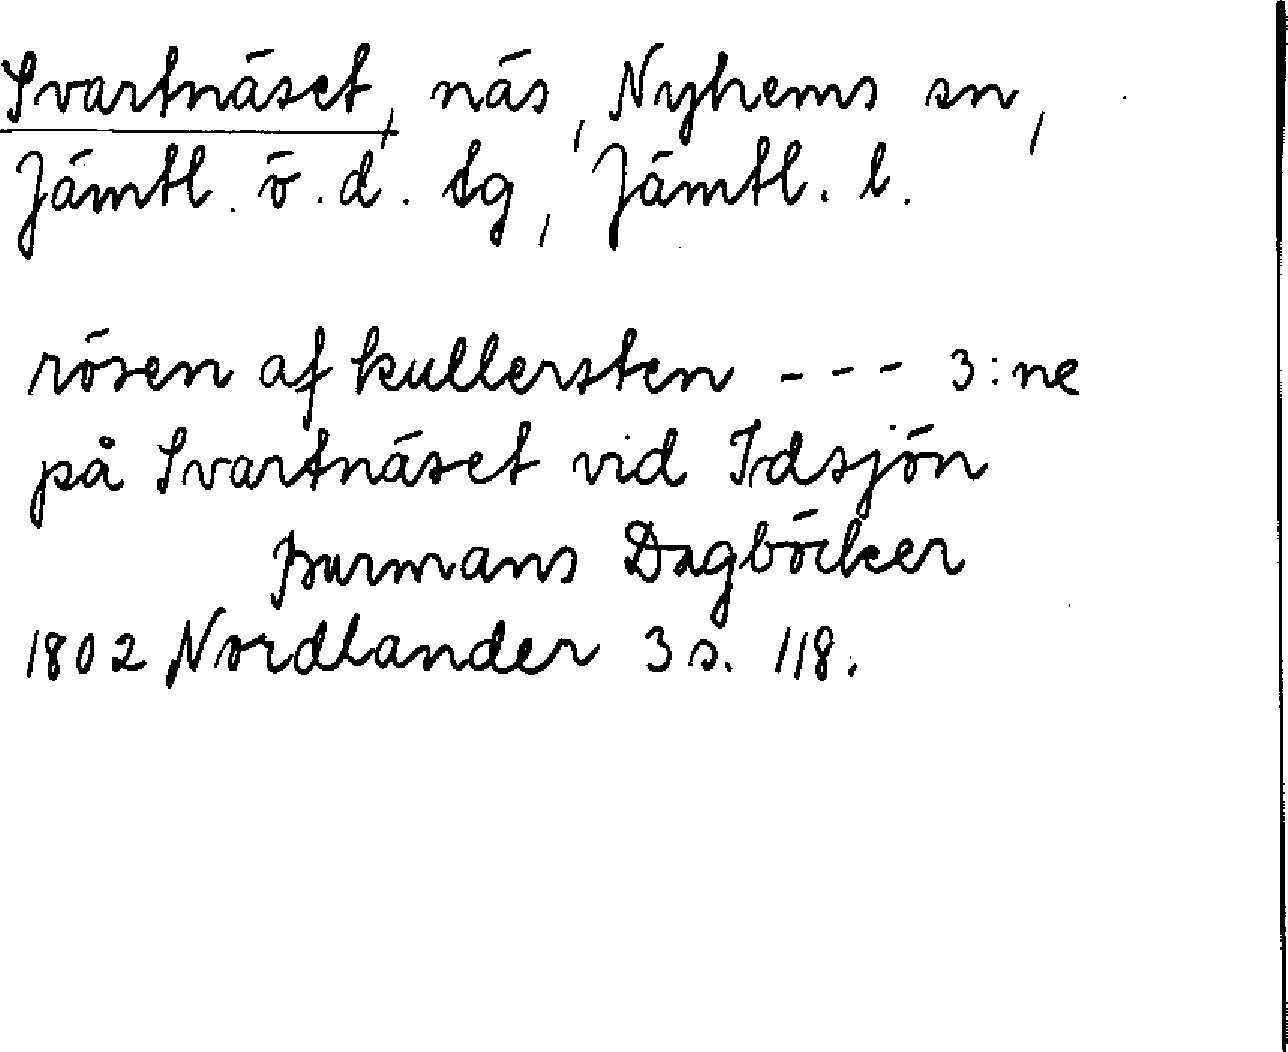 Svartnäset, näs, Nyhems sn,
Jämtl. ö. d. tg, Jämtl. l.
rösen af kullersten - - - 3:ne
på Svartnäset vid Idsjön
Burmans Dagböcker
1802 Nordlander 3 s. 118.